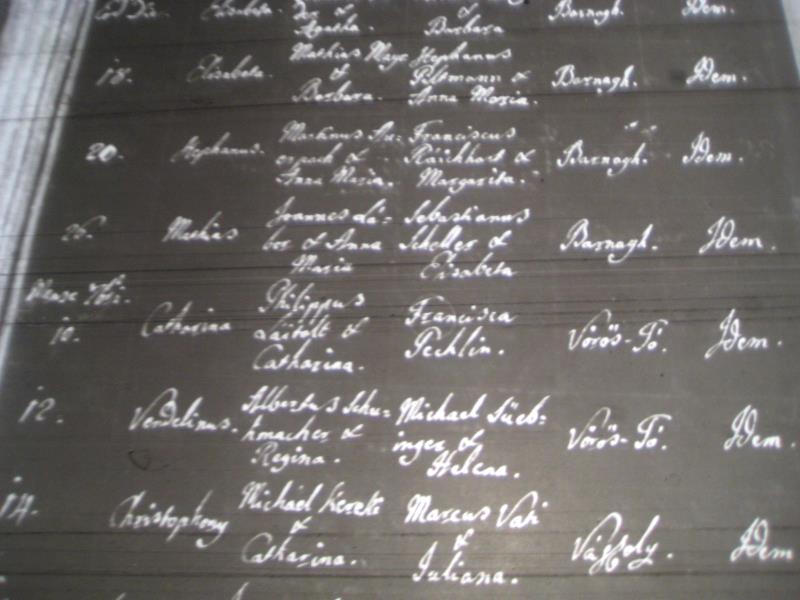 Elisabeta. & & Barnagh. Idem.
Agatha. Barbara
18. Elisabeta. Mathias Mayr Stephanus Barnagh. Idem.
& Piltmann &
Barbara. Anna Maria.
20. Stephanus. Martinus Franciscus Barnagh. Idem.
& Raichhart &
Anna Maria. Margarita.
26. Mathias Joannes Sebastianus Barnagh. Idem.
ber & Anna Scheller &
Maria Elisabeta
Mense
10. Catharina Philippus Francisca Vörös-Tó. Idem.
& Pechlin.
Catharina.
12. Vendelinus. Albertus Schu- Michael Süeb- Vörös-Tó. Idem.
hmacher & inger &
Regina. Helena.
14. Christophorus Michael Marcus Idem
& &
Catharina. Juliana.